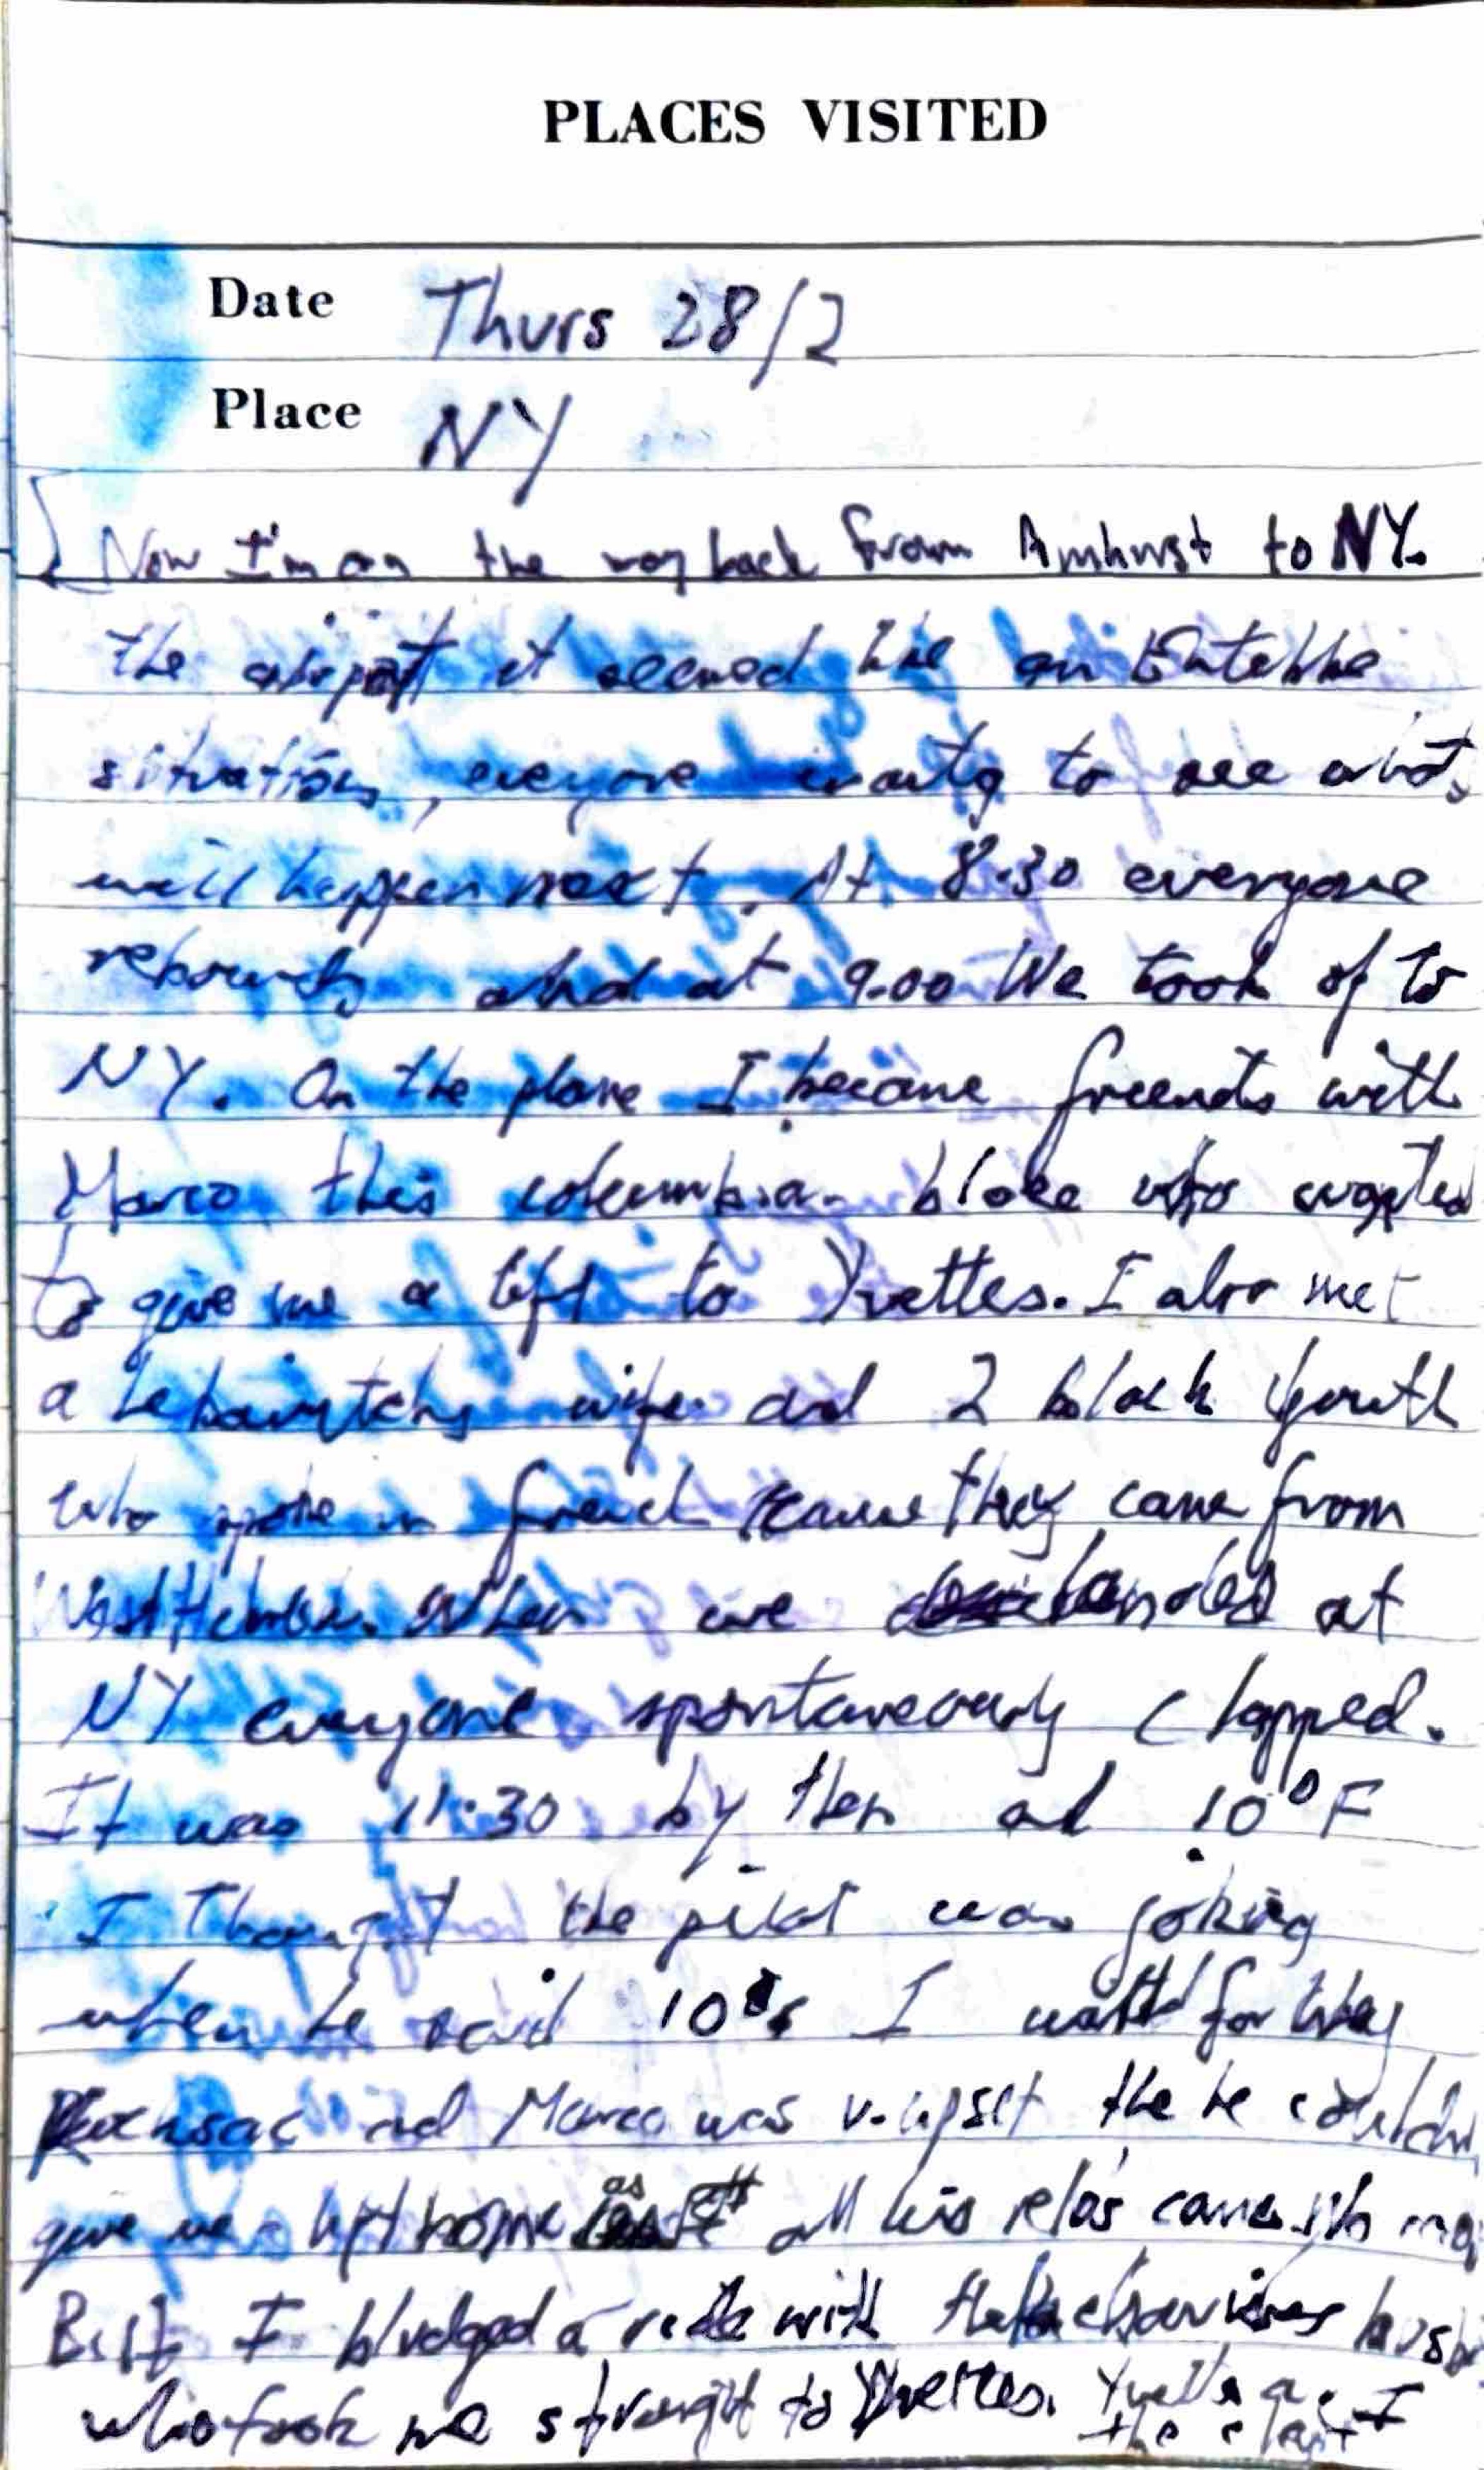 PLACES VISITED
Date Thurs 28/2
Place NY
Now I'm on the way back from Amhurst to NY.
the airport it seemed like an Entebbe
situation, everyone waiting to see what
will happen next. At 8.30 everyone
and at 9.00 We took of to
NY. On the plane I became friends with
Marco this columbian bloke who wanted
to give me a lift to Yvettes. I also met
a wife and 2 black youth
who spoke in french cause they came from
When we landed at
NY everyone spontaneously clapped.
It was 11.30 by then and 10°F
I thought the pilot was joking
when he said 10°. I waited for my
Rucksac and Marco was v. upset the he couldn
give me a lift home as all his relos came
But I bludged a ride with the
who took me straight to Yvettes. Yvette &amp; I
the